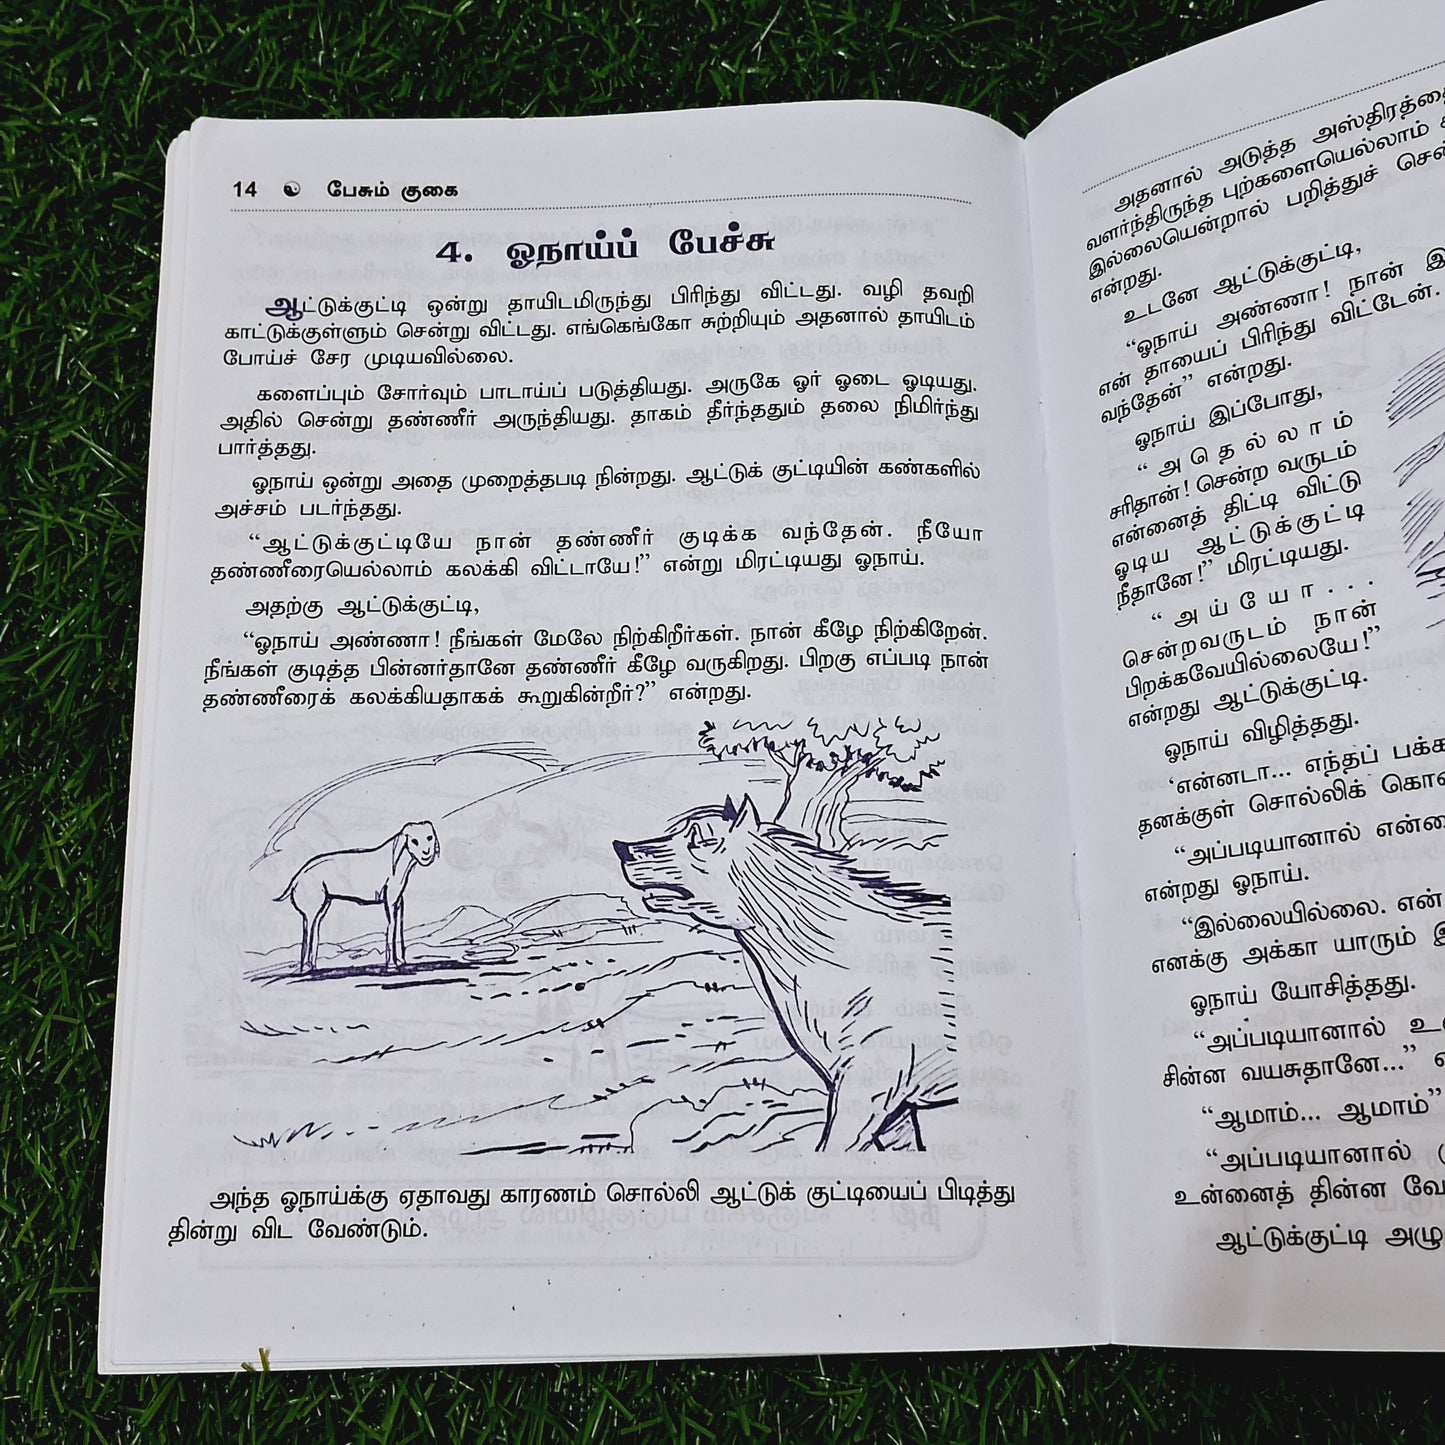 14 பேசும் குகை
4. ஓநாய்ப் பேச்சு
ஆட்டுக்குட்டி ஒன்று தாயிடமிருந்து பிரிந்து விட்டது. வழி தவறி
காட்டுக்குள்ளும் சென்று விட்டது. எங்கெங்கோ சுற்றியும் அதனால் தாயிடம்
போய்ச் சேர முடியவில்லை.
களைப்பும் சோர்வும் பாடாய்ப் படுத்தியது. அருகே ஓர் ஓடை ஓடியது.
அதில் சென்று தண்ணீர் அருந்தியது. தாகம் தீர்ந்ததும் தலை நிமிர்ந்து
பார்த்தது.
ஓநாய் ஒன்று அதை முறைத்தபடி நின்றது. ஆட்டுக் குட்டியின் கண்களில்
அச்சம் படர்ந்தது.
“ஆட்டுக்குட்டியே நான் தண்ணீர் குடிக்க வந்தேன். நீயோ
தண்ணீரையெல்லாம் கலக்கி விட்டாயே!” என்று மிரட்டியது ஓநாய்.
அதற்கு ஆட்டுக்குட்டி,
“ஓநாய் அண்ணா! நீங்கள் மேலே நிற்கிறீர்கள். நான் கீழே நிற்கிறேன்.
நீங்கள் குடித்த பின்னர்தானே தண்ணீர் கீழே வருகிறது. பிறகு எப்படி நான்
தண்ணீரைக் கலக்கியதாகக் கூறுகின்றீர்?” என்றது.
அந்த ஓநாய்க்கு ஏதாவது காரணம் சொல்லி ஆட்டுக் குட்டியைப் பிடித்து
தின்று விட வேண்டும்.
அதனால் அடுத்த அஸ்திரத்தை
வளர்ந்திருந்த புற்களையெல்லாம்
இல்லையென்றால் பறித்துச்
என்றது.
உடனே ஆட்டுக்குட்டி,
“ஓநாய் அண்ணா! நான்
என் தாயைப் பிரிந்து விட்டேன்.
வந்தேன்” என்றது.
ஓநாய் இப்போது,
“அதெல்லாம்
சரிதான்! சென்ற வருடம்
என்னைத் திட்டி விட்டு
ஓடிய ஆட்டுக்குட்டி
நீதானே!” மிரட்டியது.
“அய்யோ...
சென்றவருடம் நான்
பிறக்கவேயில்லையே!”
என்றது ஆட்டுக்குட்டி.
ஓநாய் விழித்தது.
‘என்னடா... எந்தப்
தனக்குள் சொல்லிக்
“அப்படியானால்
என்றது ஓநாய்.
“இல்லையில்லை. என்
எனக்கு அக்கா யாரும்
ஓநாய் யோசித்தது.
“அப்படியானால்
சின்ன வயசுதானே...”
“ஆமாம்... ஆமாம்”
“அப்படியானால்
உன்னைத் தின்ன
ஆட்டுக்குட்டி